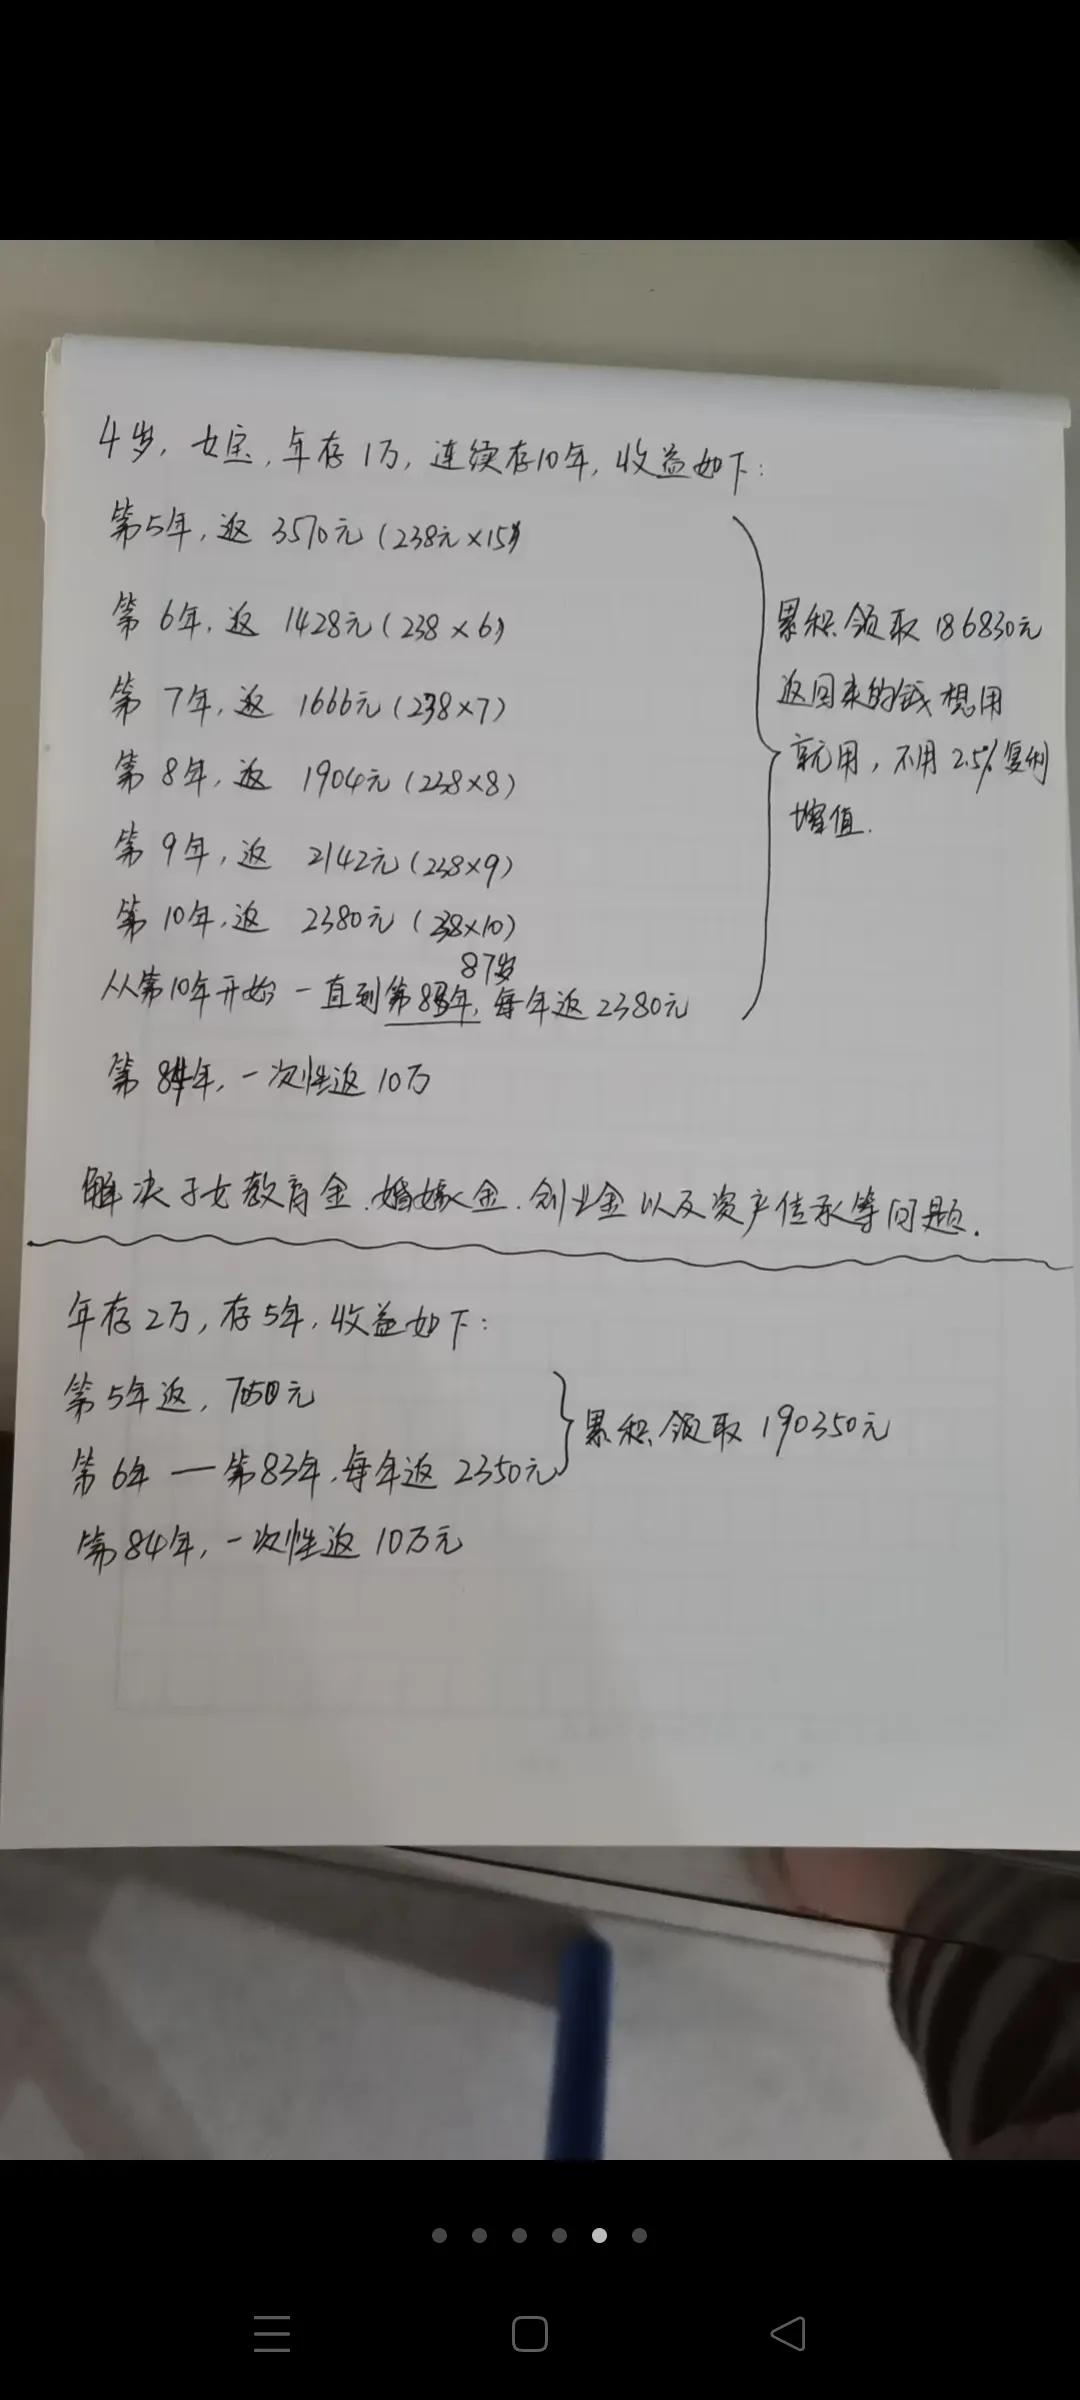 4岁，女宝，年存1万，连续存10年，收益如下：
第5年，返 3570元（238元×15）
第6年，返 1428元（238×6）
第7年，返 1666元（238×7）
第8年，返 1904元（238×8）
第9年，返 2142元（238×9）
第10年，返 2380元（238×10）
87岁
从第10年开始一直到第83年，每年返2380元
累积领取186830元
返回来的钱想用
就用，不用2.5%复利
增值.
第84年，一次性返10万
解决子女教育金、婚嫁金、创业金以及资产传承等问题.
年存2万，存5年，收益如下：
第5年返，7050元
第6年—第83年，每年返2350元
累积领取190350元
第84年，一次性返10万元